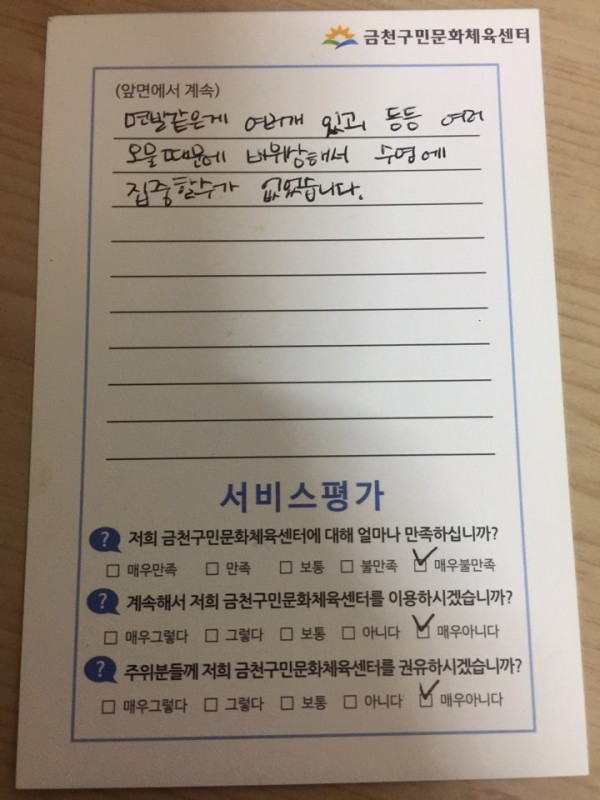 금천구민문화체육센터
(앞면에서 계속)
면발같은게 여러개 있고, 등등 여러
오물때문에 비위상해서 수영에
집중할수가 없었습니다.
서비스평가
? 저희 금천구민문화체육센터에 대해 얼마나 만족하십니까?
□ 매우만족 □ 만족 □ 보통 □ 불만족 ☑ 매우불만족
? 계속해서 저희 금천구민문화체육센터를 이용하시겠습니까?
□ 매우그렇다 □ 그렇다 □ 보통 □ 아니다 ☑ 매우아니다
? 주위분들께 저희 금천구민문화체육센터를 권유하시겠습니까?
□ 매우그렇다 □ 그렇다 □ 보통 □ 아니다 ☑ 매우아니다